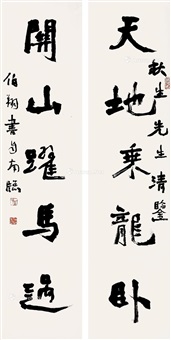 天地乘龍卧
秋生先生清鑒
開山躍馬過
伯翔書